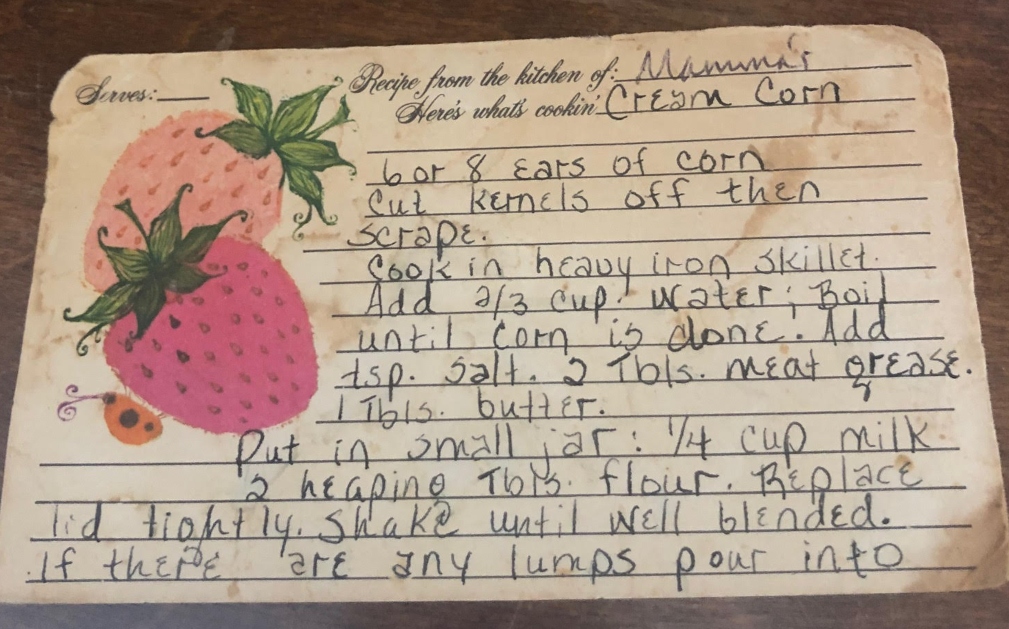 Serves:
Recipe from the kitchen of: Mamma's
Here's what's cookin' Cream Corn
6 or 8 ears of corn
cut kernels off then
scrape.
Cook in heavy iron skillet.
Add 2/3 cup. water; Boil
until corn is done. Add
tsp. salt. 2 Tbls. meat grease.
1 Tbls. butter.
Put in small jar: 1/4 cup milk
2 heaping Tbls. flour. Replace
lid tightly. Shake until well blended.
If there are any lumps pour into